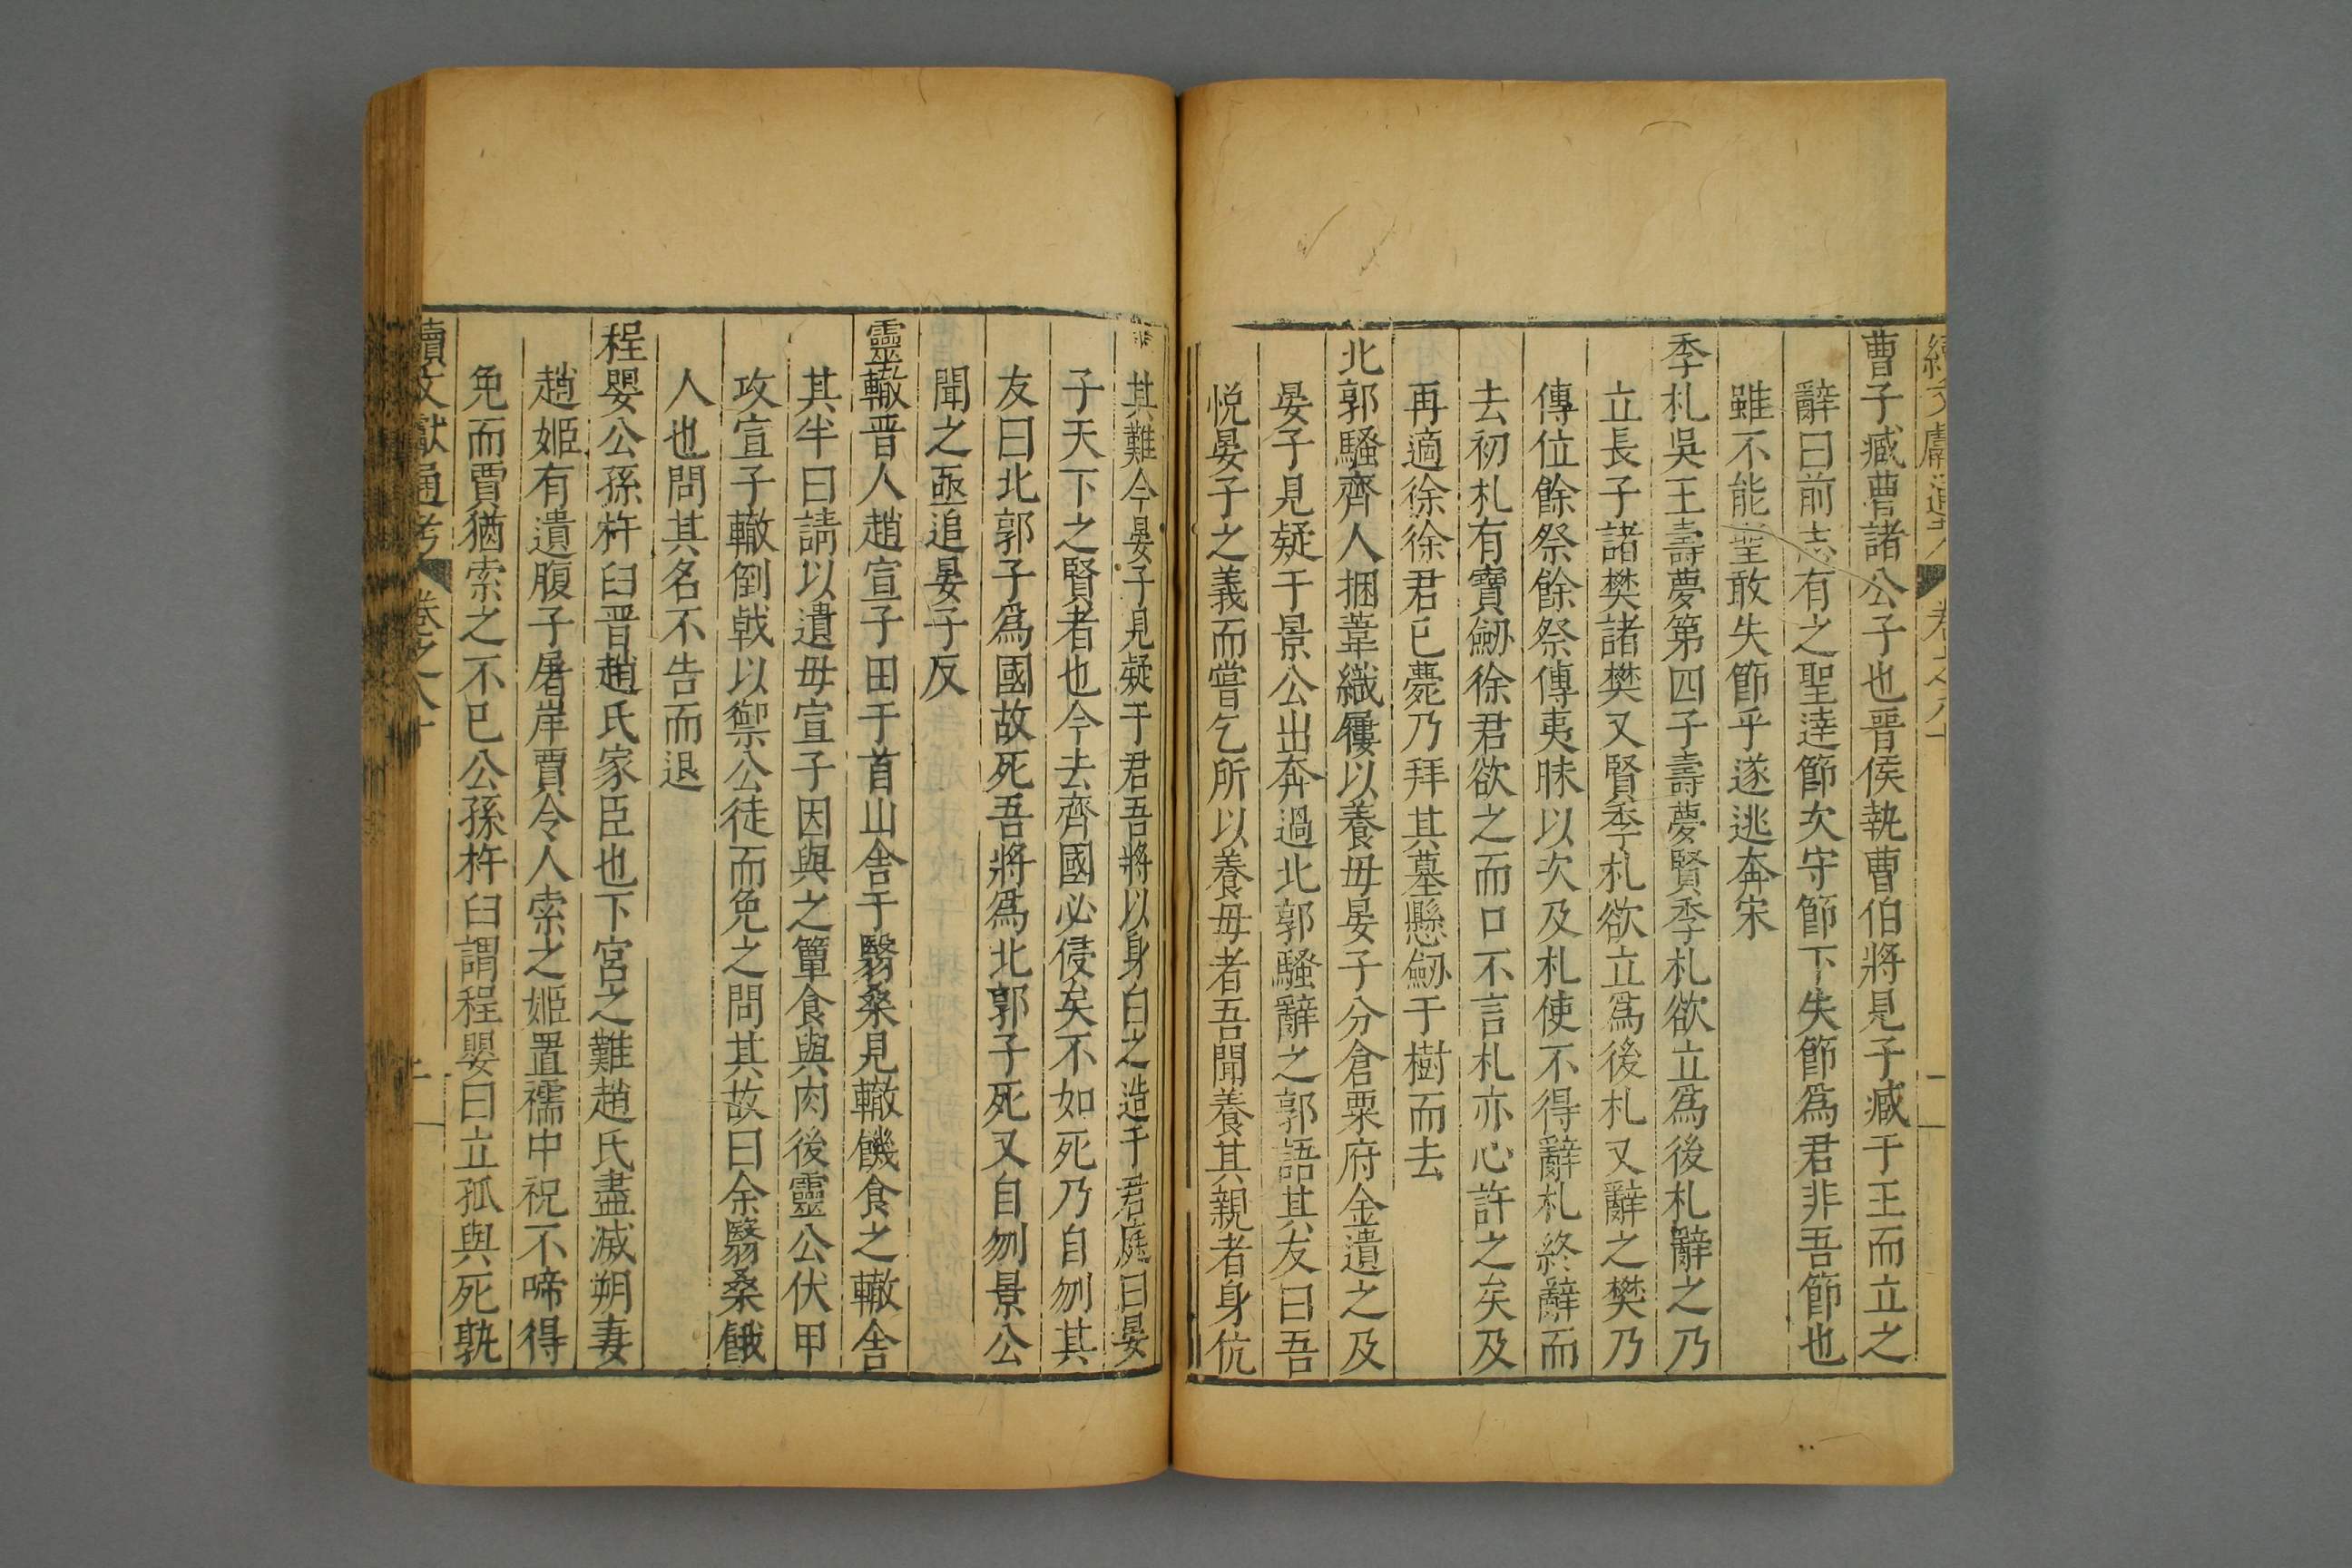 續文獻通考 卷之八十
曹子臧曹諸公子也晉侯執曹伯將見子臧于王而立之
辭曰前志有之聖達節次守節下失節爲君非吾節也
雖不能聖敢失節乎遂逃奔宋
季札吳王壽夢第四子壽夢賢季札欲立爲後札辭之乃
立長子諸樊諸樊又賢季札欲立爲後札又辭之樊乃
傳位餘祭餘祭傳夷昧以次及札使不得辭札終辭而
去初札有寶劒徐君欲之而口不言札亦心許之矣及
再適徐徐君已薨乃拜其墓懸劒于樹而去
北郭騷齊人捆葦織屨以養母晏子分倉粟府金遺之及
晏子見疑于景公出奔過北郭騷辭之郭語其友曰吾
悅晏子之義而嘗乞所以養母者吾聞養其親者身伉
其難今晏子見疑于君吾將以身白之造于君庭曰晏
子天下之賢者也今去齊國必侵矣不如死乃自刎其
友曰北郭子爲國故死吾將爲北郭子死又自刎景公
聞之亟追晏子反
靈輒晉人趙宣子田于首山舍于翳桑見輒餓食之輒舍
其半曰請以遺母宣子因與之簞食與肉後靈公伏甲
攻宣子輒倒戟以禦公徒而免之問其故曰余翳桑餓
人也問其名不告而退
程嬰公孫杵臼晉趙氏家臣也下宮之難趙氏盡滅朔妻
趙姬有遺腹子屠岸賈令人索之姬置襦中祝不啼得
免而賈猶索之不已公孫杵臼謂程嬰曰立孤與死孰
續文獻通考 卷之八十